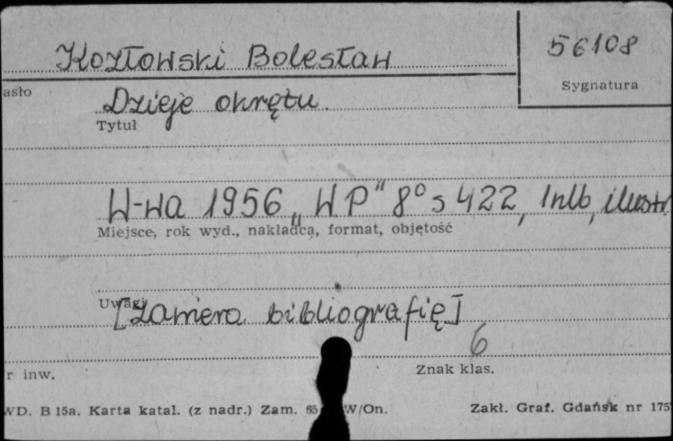 Kozłowski Bolesław
56108
Sygnatura
asło
Dzieje okrętu.
Tytuł
W-wa 1956 „WP" 8° s 422, 1nlb, ilustr
Miejsce, rok wyd., nakładca, format, objętość
Uwagi
[Zawiera bibliografię]
6
r inw.
Znak klas.
WD. B 15a. Karta katal. (z nadr.) Zam. W/On.
Zakł. Graf. Gdańsk nr 175